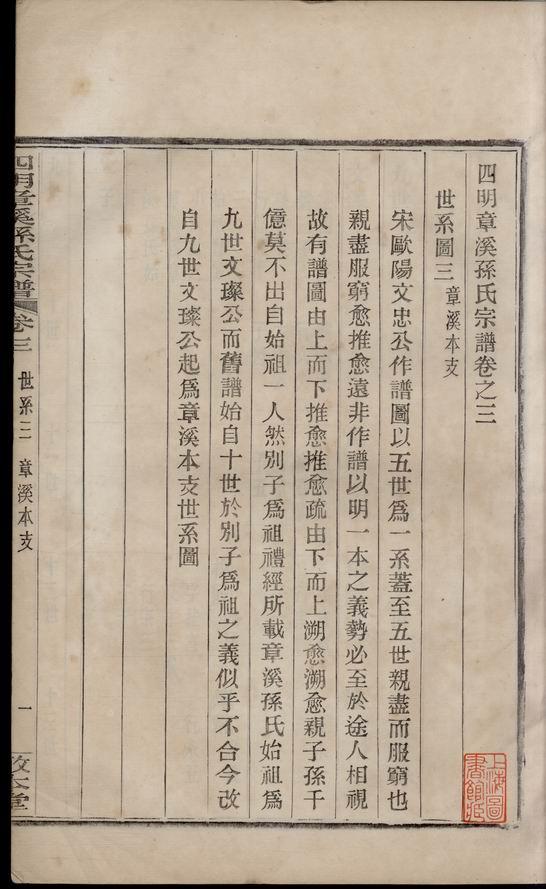 四明章溪孫氏宗譜卷之三
世系圖三章溪本支
宋歐陽文忠公作譜圖以五世爲一系蓋至五世親盡而服窮也
親盡服窮愈推愈遠非作譜以明一本之義勢必至於途人相視
故有譜圖由上而下推愈推愈疏由下而上溯愈溯愈親子孫千
億莫不出自始祖一人然別子爲祖禮經所載章溪孫氏始祖爲
九世文璨公而舊譜始自十世於別子爲祖之義似乎不合今改
自九世文璨公起爲章溪本支世系圖
四明章溪孫氏宗譜
卷三
世系三
章溪本支
一
上海圖書館藏